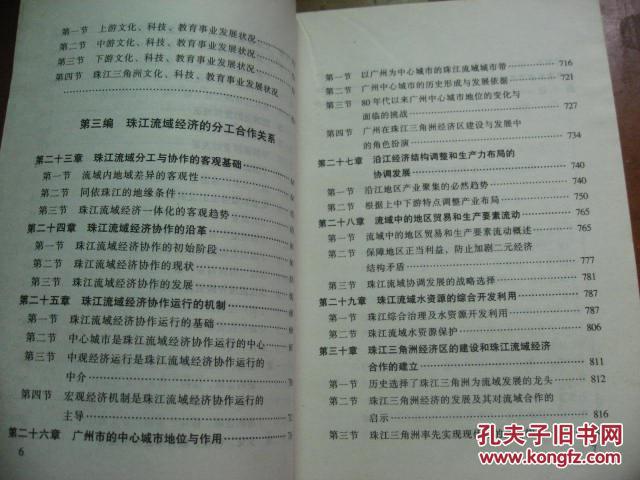 第一节 上游文化、科技、教育事业发展状况
第二节 中游文化、科技、教育事业发展状况
第三节 下游文化、科技、教育事业发展状况
第四节 珠江三角洲文化、科技、教育事业发展状况
第三编 珠江流域经济的分工合作关系
第二十三章 珠江流域分工与协作的客观基础
第一节 流域内地域差异的客观性
第二节 同依珠江的地缘条件
第三节 珠江流域经济一体化的客观趋势
第二十四章 珠江流域经济协作的沿革
第一节 珠江流域经济协作的初始阶段
第二节 珠江流域经济协作的现状
第三节 珠江流域经济协作的发展
第二十五章 珠江流域经济协作运行的机制
第一节 珠江流域经济协作运行的基础
第二节 中心城市是珠江流域经济协作运行的中心
第三节 中观经济运行是珠江流域经济协作运行的
中介
第四节 宏观经济机制是珠江流域经济协作运行的
主导
第二十六章 广州市的中心城市地位与作用
6
第一节 以广州为中心城市的珠江流域城市带 716
第二节 广州中心城市的历史形成与发展依据 721
第三节 80年代以来广州中心城市地位的变化与
面临的挑战 727
第四节 广州在珠江三角洲经济区建设与发展中
的角色扮演 734
第二十七章 沿江经济结构调整和生产力布局的
协调发展 740
第一节 沿江地区产业聚集的必然趋势 740
第二节 根据上中下游特点调整产业布局 750
第二十八章 流域中的地区贸易和生产要素流动 765
第一节 流域中的地区贸易和生产要素流动概述 765
第二节 保障地区正当利益，防止加剧二元经济
结构矛盾 777
第三节 珠江流域协调发展的战略选择 781
第二十九章 珠江流域水资源的综合开发利用 787
第一节 珠江综合治理及水资源开发利用 787
第二节 珠江流域水资源保护 806
第三十章 珠江三角洲经济区的建设和珠江流域经济
合作的建立 811
第一节 历史选择了珠江三角洲为流域发展的龙头 812
第二节 珠江三角洲经济的发展及其对流域合作的
启示 816
第三节 珠江三角洲率先实现现代
孔夫子旧书网
www.kongfz.com